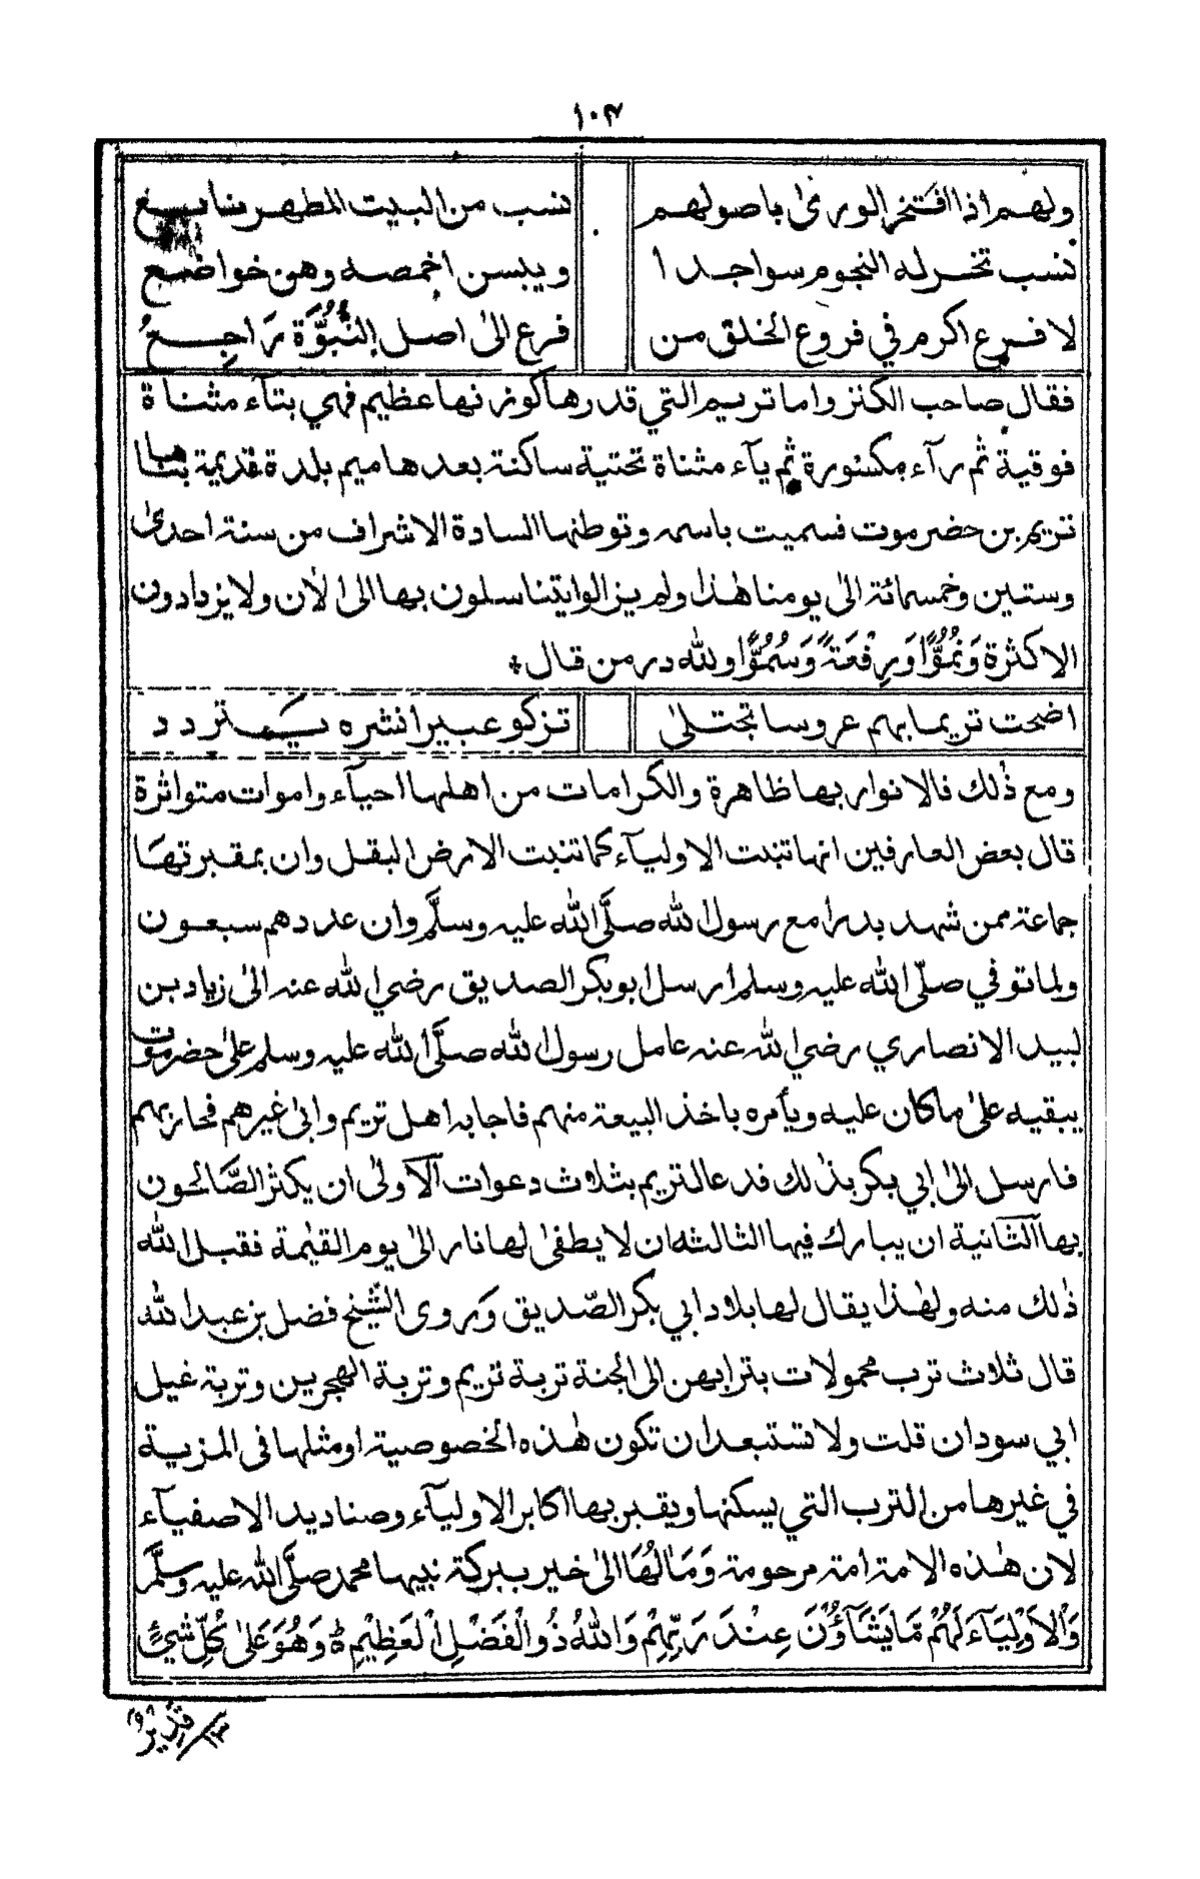 ١٠٣
ولهم اذا افتخر الورى باصولهم نسب من البيت المطهر نابع
نسب تخرله النجوم سواجدا ويبسن اخمصه وهن خواضع
لا فرع اكرم في فروع الخلق من فرع الىٰ اصل النُّبُوَّة رَاجِعُ
فقال صاحب الكنز واما تريم التي قدرها كوزنها عظيم فهي بتآء مثناة
فوقية ثم رآء مكسورة ثم يآء مثناة تحتية ساكنة بعدها ميم بلدة قديمة بناها
تريم بن حضرموت فسميت باسمه وتوطنها السادة الاشراف من سنة احدىٰ
وستين وخمسمائة الىٰ يومنا هٰذا ولم يزالوا يتناسلون بها الى الأن ولا يزدادون
الا كثرة وَنُمُوًّا وَرِفْعَةً وَسُمُوًّا ولله در من قال ؞
اضحت تريما بهم عروسا تجتلىٰ تزكو عبيرا نشره يتردد
ومع ذٰلك فالانوار بها ظاهرة والكرامات من اهلها احيآء واموات متواثرة
قال بعض العارفين انها تنبت الاوليآء كما تنبت الارض البقل وان بمقبرتهَا
جماعة ممن شهد بدرا مع رسول الله صلَّى الله عليه وسلَّم وان عددهم سبعون
ولما توفي صلّى الله عليه وسلم ارسل ابوبكر الصديق رضي الله عنه الىٰ زياد بن
لبيد الانصاري رضي الله عنه عامل رسول الله صلَّى الله عليه وسلم علىٰ حضرموت
يبقيه علىٰ ماكان عليه ويأمره باخذ البيعة منهم فاجابه اهل تريم وابىٰ غيرهم فحاربهم
فارسل الىٰ ابي بكر بذٰلك فدعا لتريم بثلاث دعوات الآولىٰ ان يكثر الصَّالحون
بها الثانية ان يبارك فيها الثالثه ان لا يطفىٰ لها نار الىٰ يوم القيٰمة فقبل الله
ذٰلك منه ولهٰذا يقال لها بلاد ابي بكر الصّديق وَروى الشَّيخ فضل بن عبد الله
قال ثلاث ترب محمولات بترابهن الى الجنة تربة تريم وتربة الهجرين وتربة غيل
ابي سودان قلت ولا تستبعد ان تكون هٰذه الخصوصية او مثلها فى المزية
في غيرها من الترب التي يسكنها ويقبر بها اكابر الاوليآء وصناديد الاصفيآء
لان هٰذه الامة امة مرحومة وَمَالهُا الىٰ خير ببركة نبيها محمد صلَّى الله عليه وسلَّم
وَالْاَوْلِيَآءَ لَهُمْ مَّا يَشَآؤُنَ عِنْدَ رَبِّهِمْ وَاللهُ ذُو الْفَضْلِ الْعَظِيْمِ ط وَهُوَ عَلىٰ كُلِّ شَيْءٍ
قدير